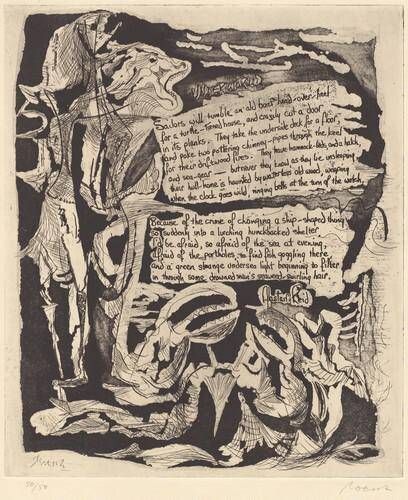 Sailors will tumble an old boat hand-over-heel
for a turtle-formed house, and crazily cut a door
in its planks. They take the underside deck for a floor,
and poke two pottering chimney-pipes through the keel
for their driftwood fires. They have hammock-beds, and a hatch,
and sea-gear — but they know as they lie unsleeping
their hull-home is haunted by waterless old wood, weeping
when the clock goes wild, ringing bells at the turn of the watch.
Because of the crime of changing a ship-shaped thing
so suddenly into a lurching hunchbacked shelter
I'd be afraid, so afraid of the sea at evening,
afraid of the portholes, to find fish goggling there
and a green strange undersea light beginning to filter
in through some drowned man's seaweed-swirling hair.
Alastair Reid
50/50